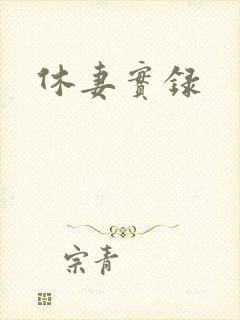 休妻實錄
宗青